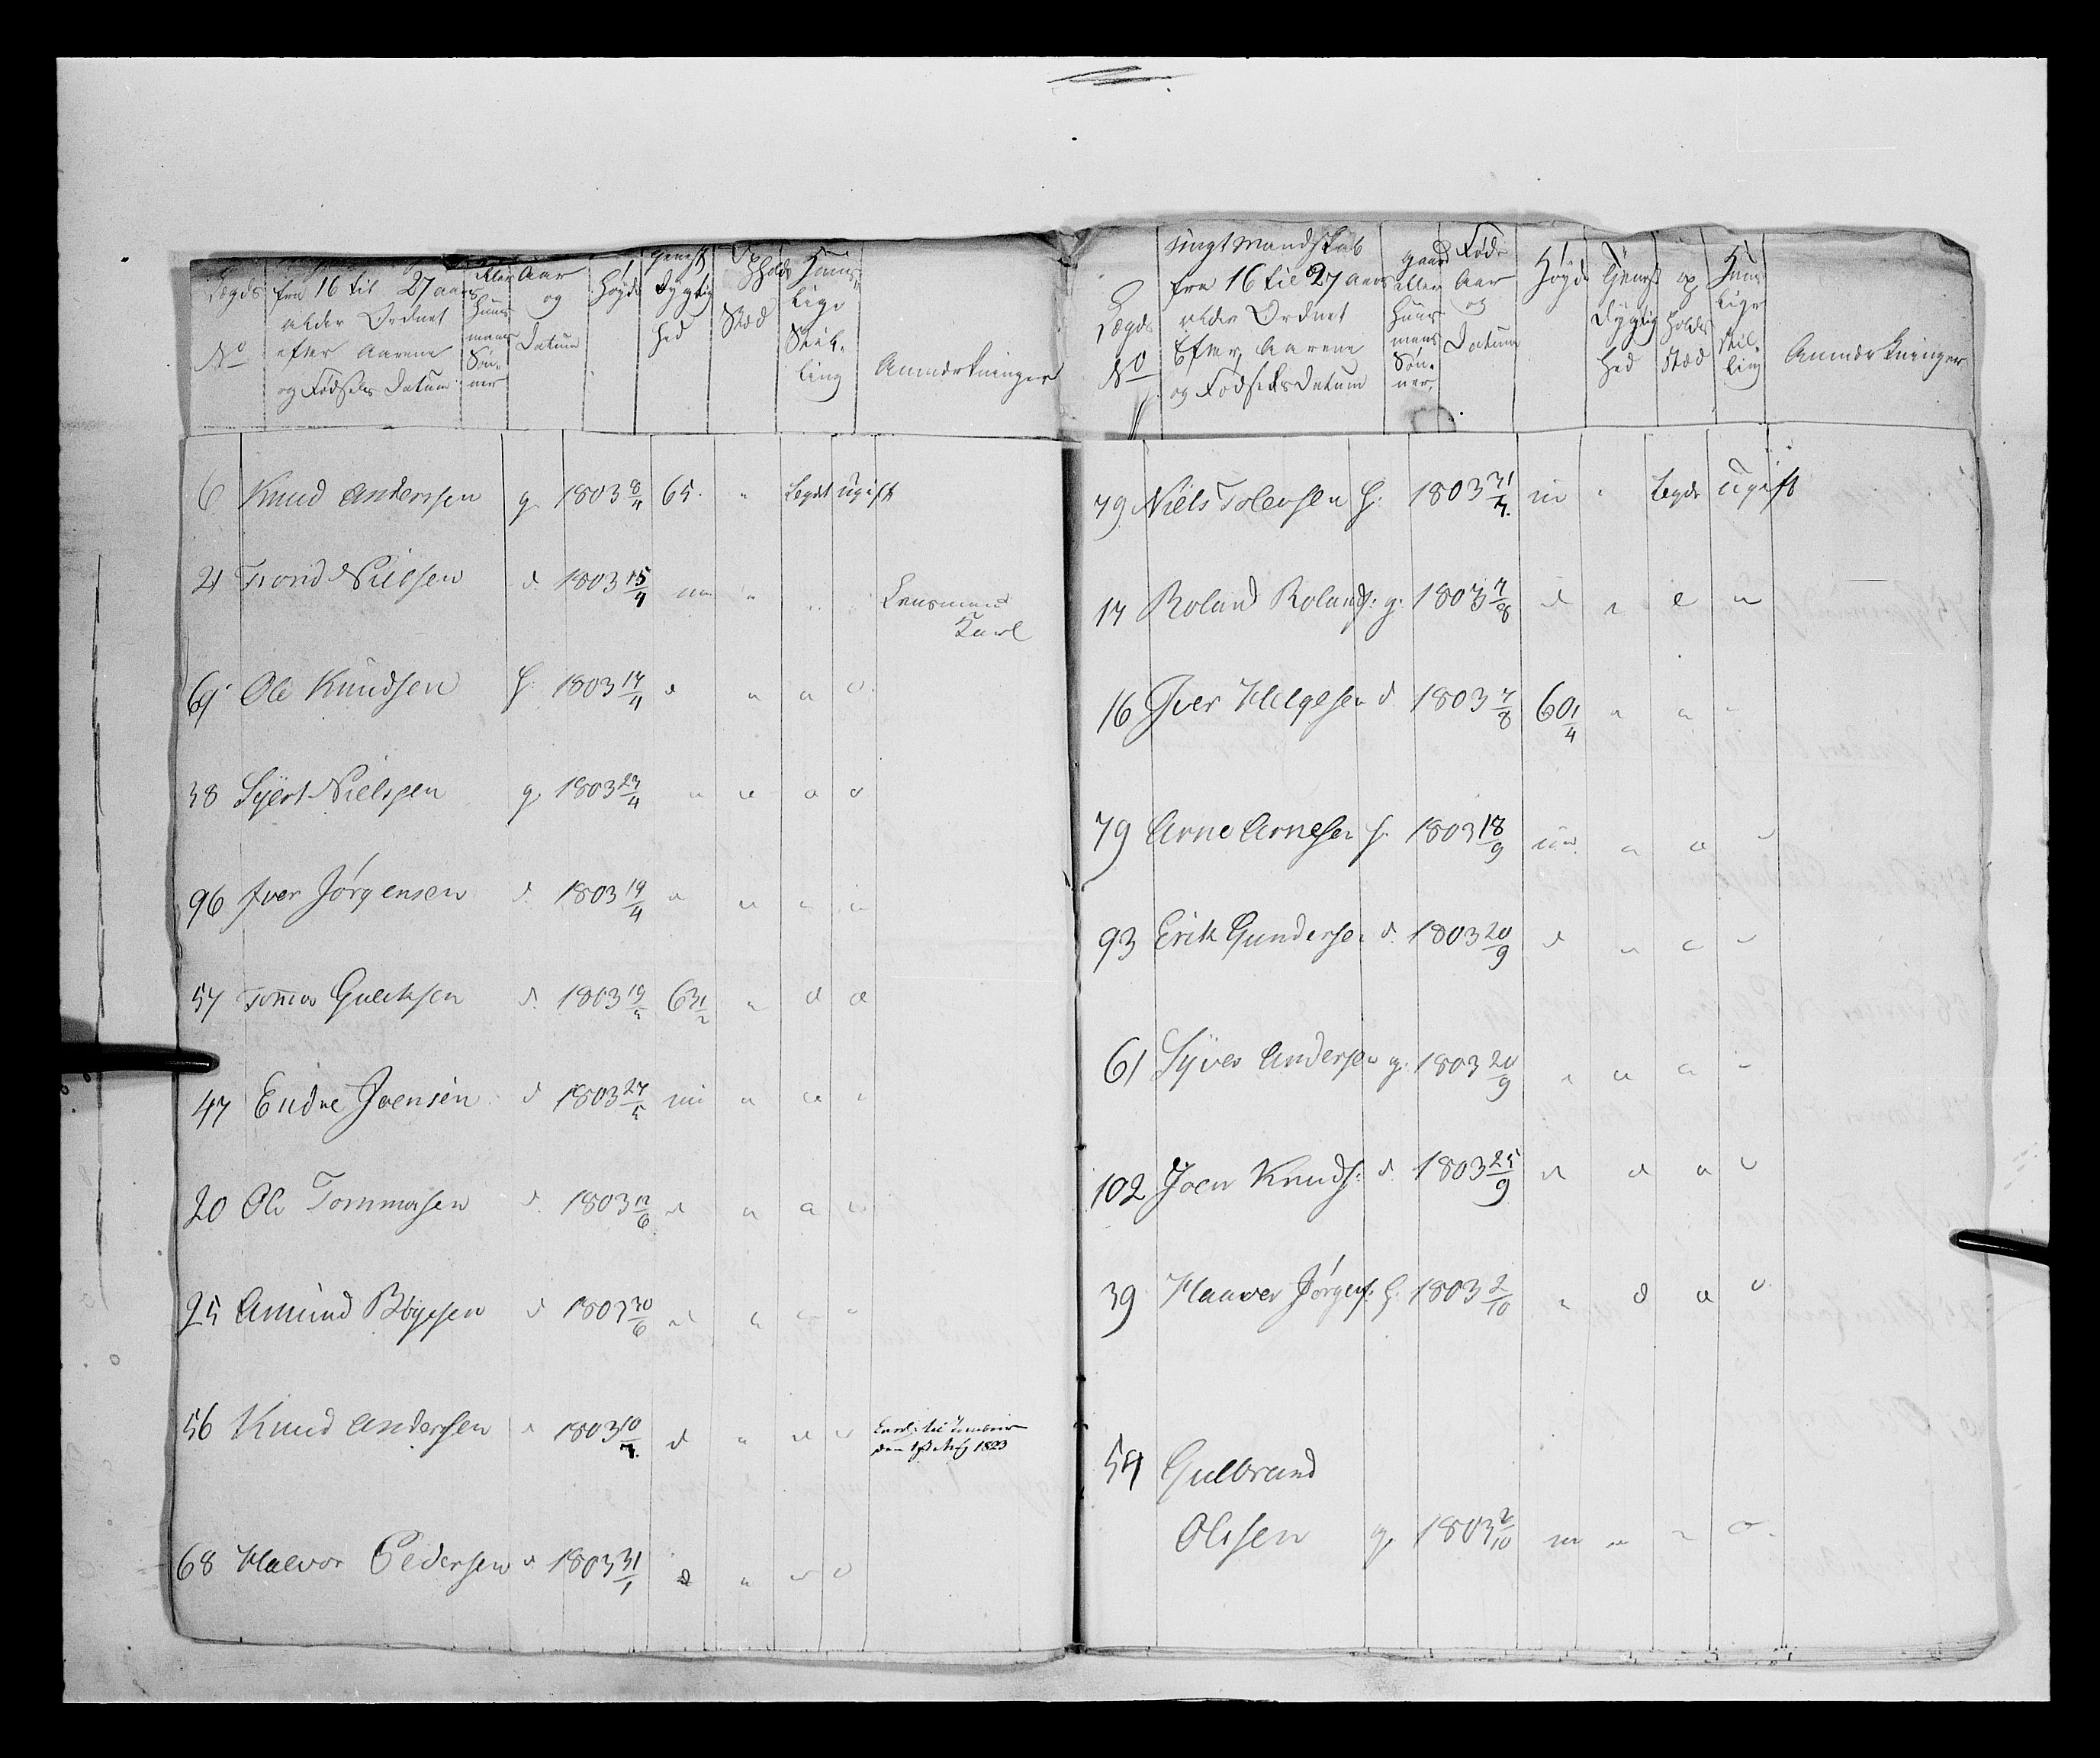 Lægds No
fra 16 til 27 aars alder Ordnet efter Aarene og Fødsels Datum
eller Huus mans Søn- ner
Aar og Datum
Høyde
Dygtig hed
Op holds Stæd
Huus- lige Stil- ling
Anmærkninger
6 Knud Anderssen g. 1803 8/4 65. " Legdt ugift
21 Trond Nielsen d 1803 15/4 " " "
Lensmand
Karl
69 Ole Knudsen h. 1803 17/4 d " " "
38 Syert Nielssen g. 1803 23/4 " " " "
96 Iver Jørgensen d. 1803 19/4 " " " "
57 Gulchsen d. 1803 19/5 63 1/2 " d d
47 Endre Joensen d 1803 27/5 " " "
20 Ole Tommasen d. 1803 12/6 d " " "
25 Amund Bøgesen d 1803 30/6 " " " "
56 Knud Anderssen d 1803 10/7. d " " "
den 1823
68 Halvor Pedersen d 1803 31/ d " " "
Lægds No
ungt Mandskab fra 16 til 27 aars alder Ordnet Efter Aarene og Fødsels Datum
gaard eller Huus mans Søn- ner,
Fød- Aar og Datum
Høyde
Tjenst Dygtig hed
op holds stæd
Huus lige stil- ling
Anmærkninger
79 Niels Tolevsen h. 1803 31/7. " Legds ugift
17 Roland Rolands: g. 1803 7/8 d " " "
16 Iver Helgesen d 1803 7/8 60 1/4 " " "
79 Arne Arnesen h. 1803 18/9 " " "
93 Erik Gundersen d. 1803 20/9 d " " "
61 Syver Andersen g. 1803 20/9 " " " "
102 Joen Knuds: d. 1803 25/9 d d " "
39 Haaver Jørgens. h. 1803 2/10 " d " "
54 Gulbrand
Olssen g. 1803 2/10 " " "